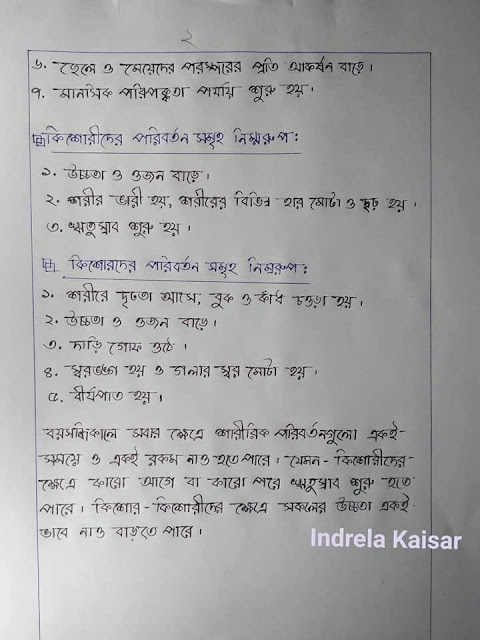 ২
৬. ছেলে ও মেয়েদের পরস্পরের প্রতি আকর্ষন বাড়ে।
৭. মানসিক পরিপক্কতা পর্যায় শুরু হয়।
কিশোরীদের পরিবর্তন সমূহ নিম্নরুপ:
১. উচ্চতা ও ওজন বাড়ে।
২. শরীর ভারী হয়, শরীরের বিভিন্ন হার মোটা ও দৃঢ় হয়।
৩. ঋতুস্রাব শুরু হয়।
কিশোরদের পরিবর্তন সমূহ নিম্নরুপ:
১. শরীরে দৃঢ়তা আসে, বুক ও কাঁধ চওড়া হয়।
২. উচ্চতা ও ওজন বাড়ে।
৩. দাড়ি গোফ ওঠে।
৪. স্বরভঙ্গ হয় ও গলার স্বর মোটা হয়।
৫. বীর্যপাত হয়।
বয়সন্ধিকালে সবার ক্ষেত্রে শারীরিক পরিবর্তনগুলো একই-
সময়ে ও একই রকম নাও হতে পারে। যেমন- কিশোরীদের-
ক্ষেত্রে কারো আগে বা কারো পরে ঋতুস্রাব শুরু হতে
পারে। কিশোর-কিশোরীদের ক্ষেত্রে সকলের উচ্চতা একই-
ভাবে নাও বাড়তে পারে।
Indrela Kaisar